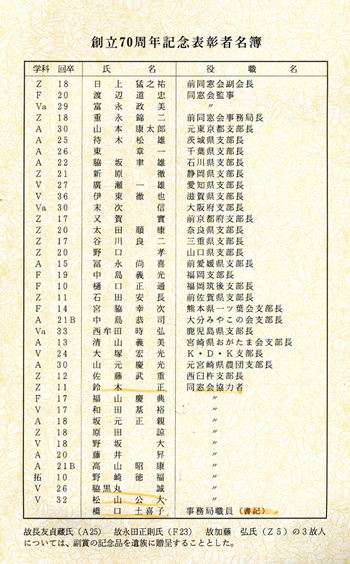 創立70周年記念表彰者名簿
学科 回卒 氏 名 役 職 名
Z 18 日上猛之祐 前同窓会副会長
F 20 渡辺道忠 同窓会監事
Va 29 富永政美 〃
Z 18 重永錦二 前同窓会事務局長
A 30 山本康太郎 元東京都支部長
A 25 待木松雄 茨城県支部長
A 26 東章一 千葉県支部長
A 22 脇坂聿雄 石川県支部長
Z 21 新原徹 静岡県支部長
V 27 廣瀬一雄 愛知県支部長
V 36 伊東徹也 滋賀県支部長
Va 30 末次信 大阪府支部長
Z 17 又賀實 前京都府支部長
Z 20 太田順康 奈良県支部長
Z 17 谷川良二 三重県支部長
Z 20 野口孝 山口県支部長
A 15 冨永尚喜 前愛媛県支部長
F 19 中島義光 福岡支部長
F 10 樋口正通 福岡筑後支部長
Z 11 石田安長 前佐賀県支部長
F 14 宮脇幸次 熊本県一ツ葉会支部長
A 21B 中島恭司 大分みやこの会支部長
Va 33 西牟田時弘 鹿児島県支部長
A 13 清山義美 宮崎県おがたま会支部長
V 24 大塚宏光 K・D・K支部長
A 30 山元慶光 元宮崎県農団支部長
Z 12 佐藤武重 西臼杵支部長
Z 11 鈴木正 同窓会協力者
F 17 福山慶典 〃
V 17 和田基裕 〃
A 18 坂元正親 〃
Z 18 原田諒 〃
V 18 野坂大 〃
A 20 藤井昇 〃
A 21B 高山昭康 〃
拓 10 野崎徳福 〃
V 26 脇黒丸誠 〃
V 32 松山公大 〃
橋口土喜子 事務局職員(書記)
故長友貞蔵氏(A25) 故永田正則氏(F23) 故加藤 弘氏(Z5)の3故人
については、副賞の記念品を遺族に贈呈することとした。